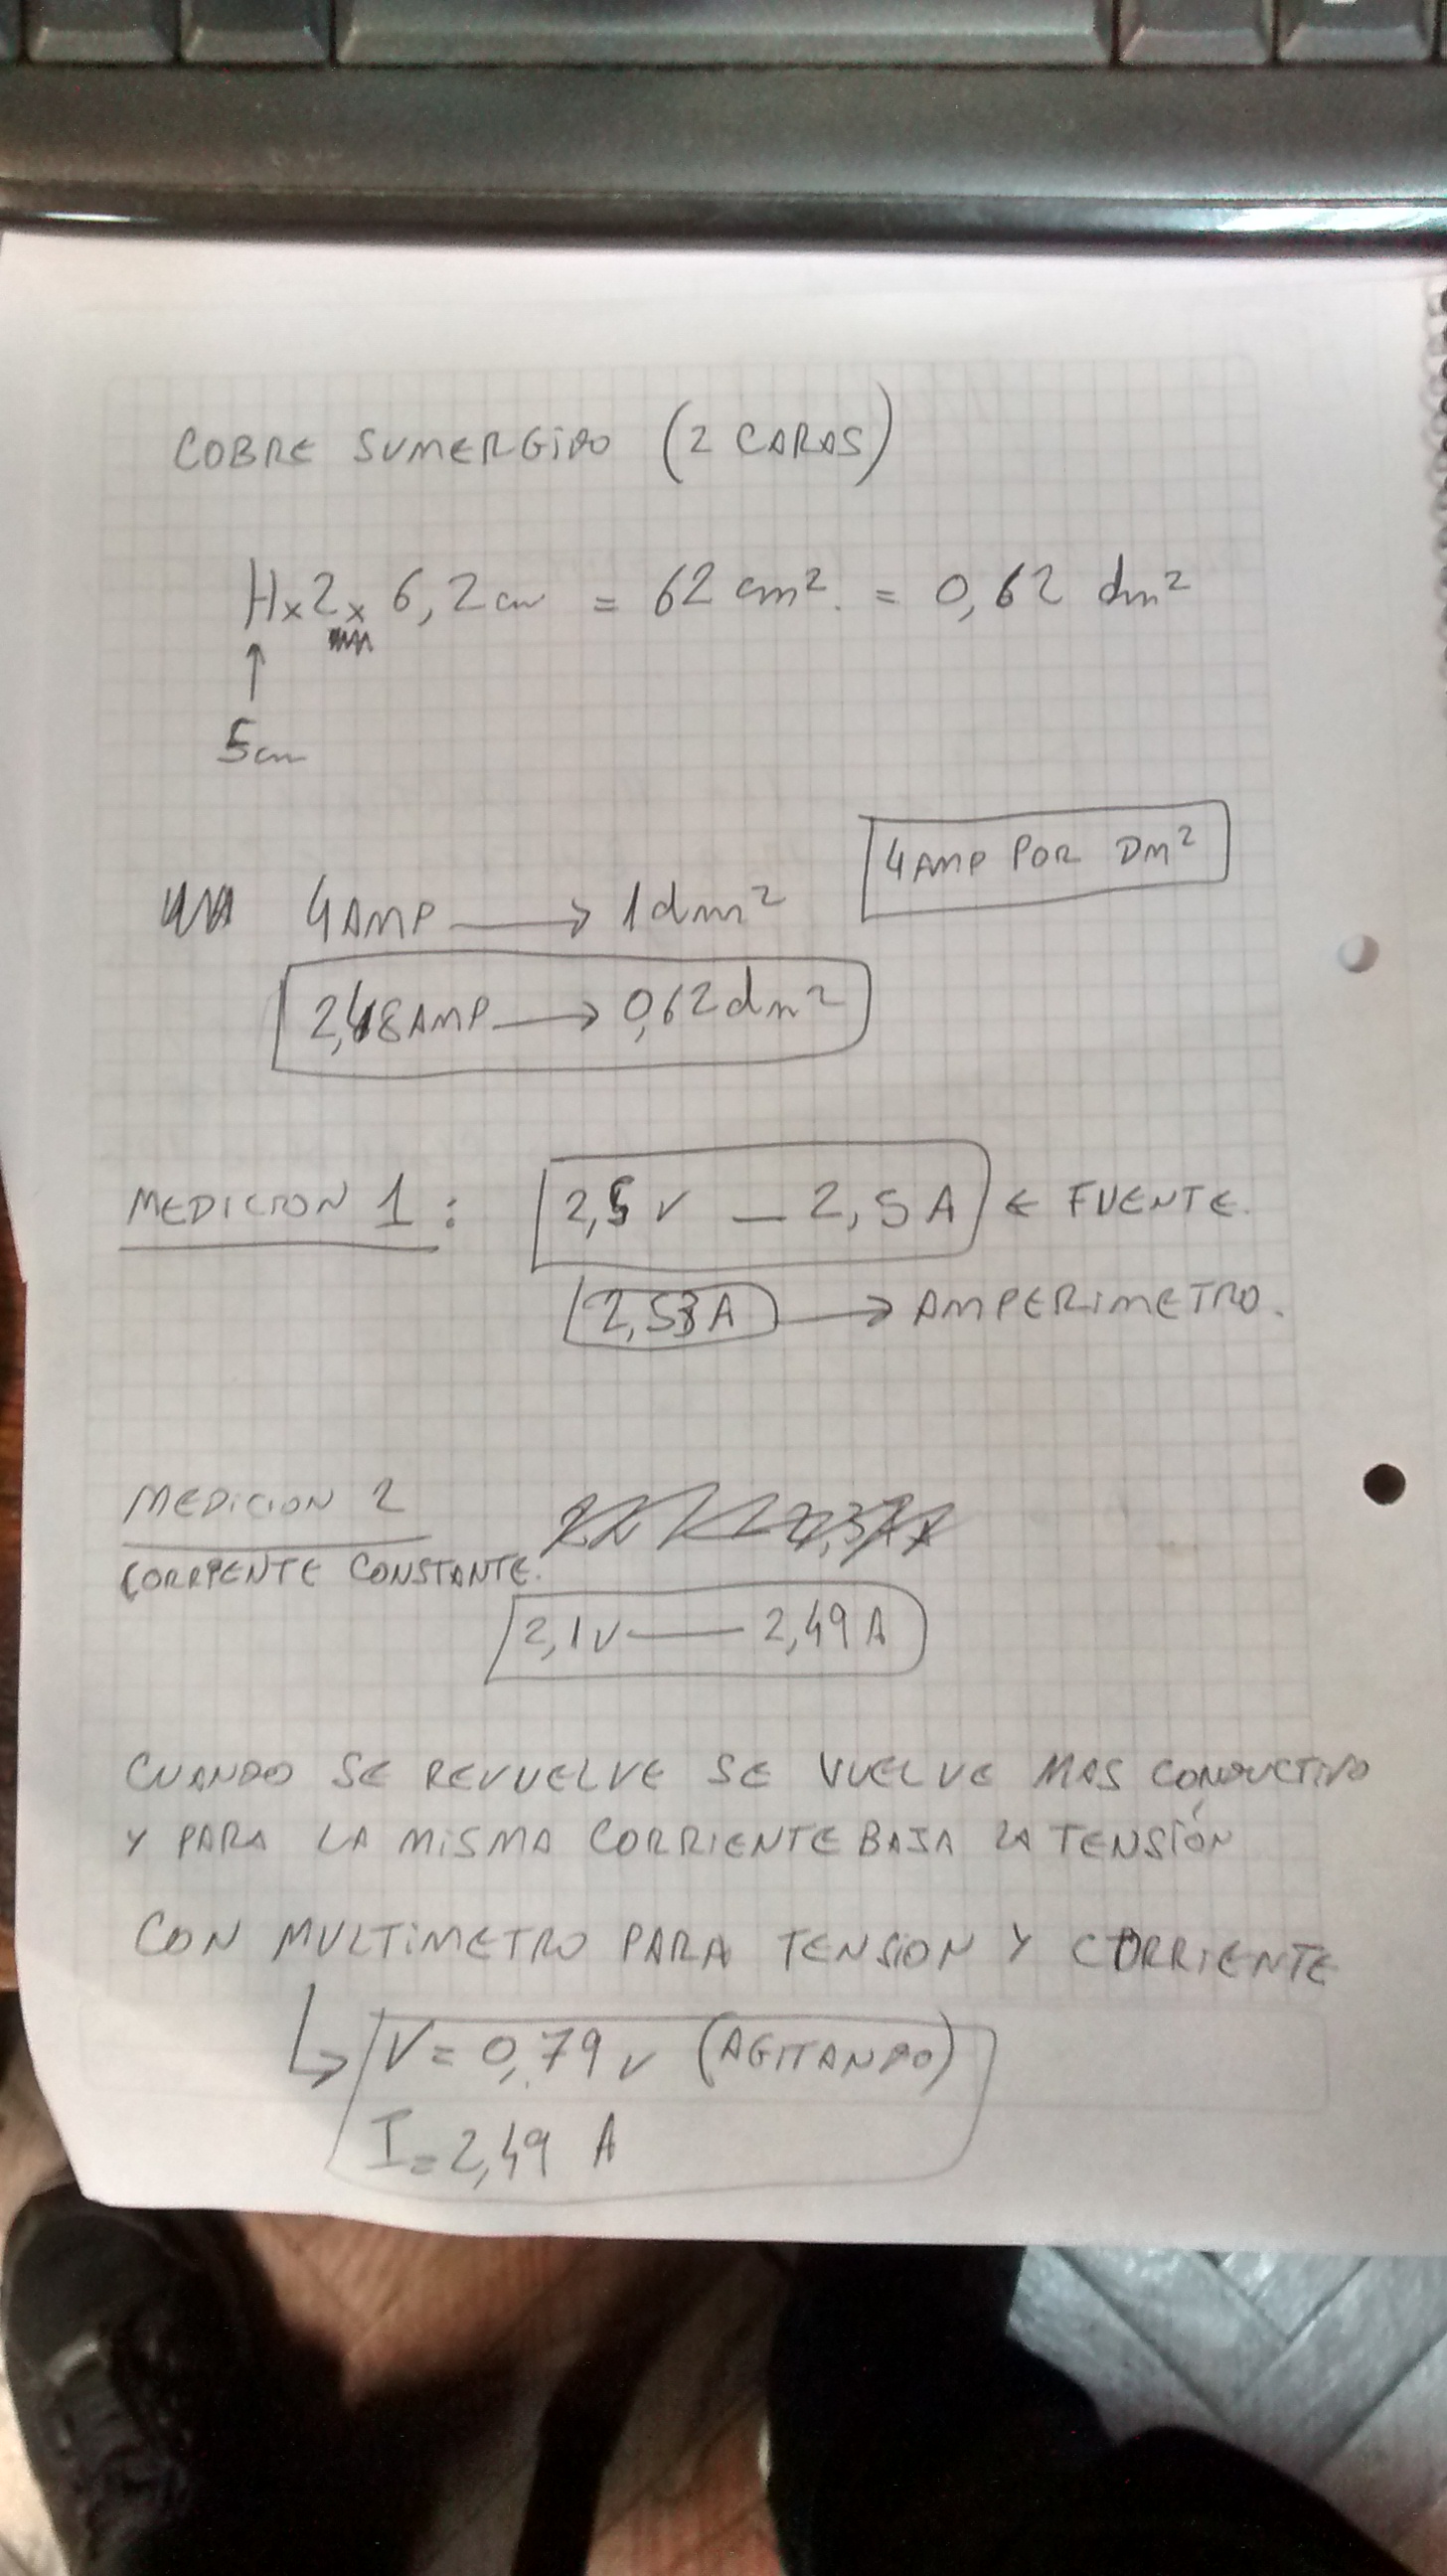 COBRE SUMERGIDO (2 CARAS)
H x 2 x 6,2 cm = 62 cm². = 0,62 dm²
↑
5cm
4 AMP POR DM²
4 AMP → 1 dm²
2,48 AMP → 0,62 dm²
MEDICION 1: 2,5 V — 2,5 A ← FUENTE.
2,53 A → AMPERIMETRO.
MEDICION 2
CORRIENTE CONSTANTE.
2,1 V — 2,49 A
CUANDO SE REVUELVE SE VUELVE MAS CONDUCTIVO
Y PARA LA MISMA CORRIENTE BAJA LA TENSIÓN
CON MULTIMETRO PARA TENSION Y CORRIENTE
↳ V = 0,79 V (AGITANDO)
I = 2,49 A